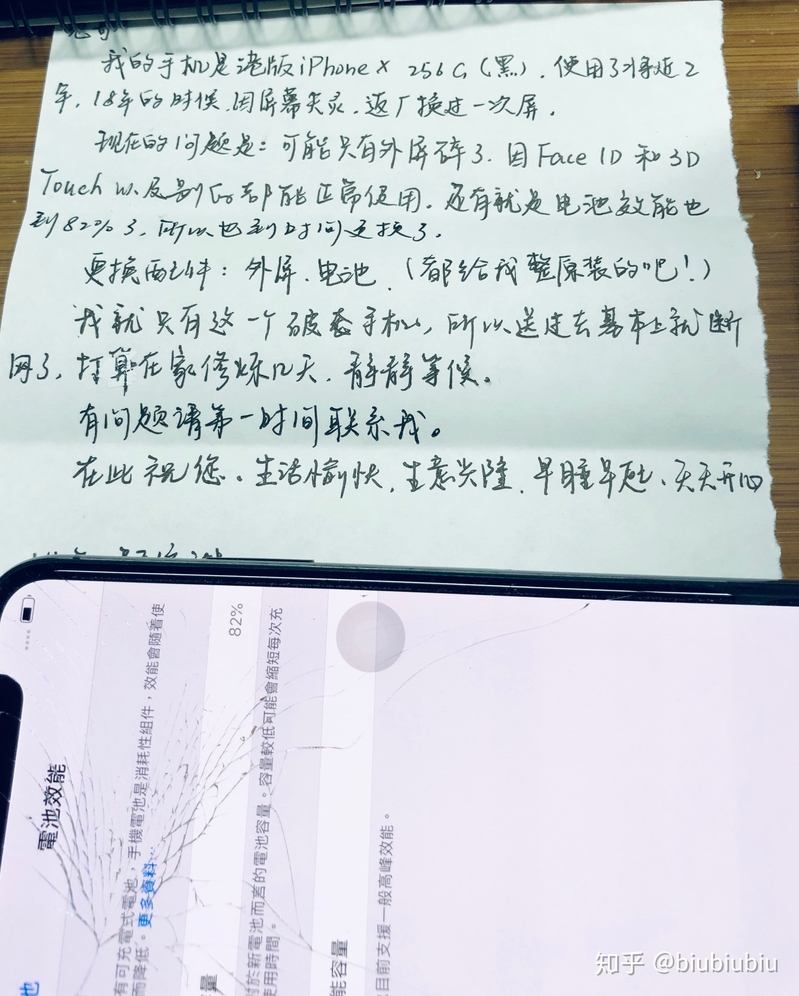 我的手机是港版iPhone X 256G(黑),使用了将近2
年,18年的时候,因屏幕失灵,返厂换过一次屏。
现在的问题是:可能只有外屏碎了,因Face ID和3D
Touch以及别的都能正常使用,还有就是电池效能也
到82%了,所以也到时间更换了。
更换两件:外屏、电池,(都给我整原装的吧!)
我就只有这一个破套手机,所以送过去基本上就断
网了,打算在家修炼几天,静静等候。
有问题请第一时间联系我。
在此祝您。生活愉快,生意兴隆,早睡早起、天天开心
電池效能
有可充電式電池,手機電池是消耗性組件,效能會隨着使
而降低。更多資料⋯
量
82%
對於新電池而言的電池容量。容量較低可能會縮短每次充
使用時間。
能容量
目前支援一般高峰效能。
知乎 @biubiubiu